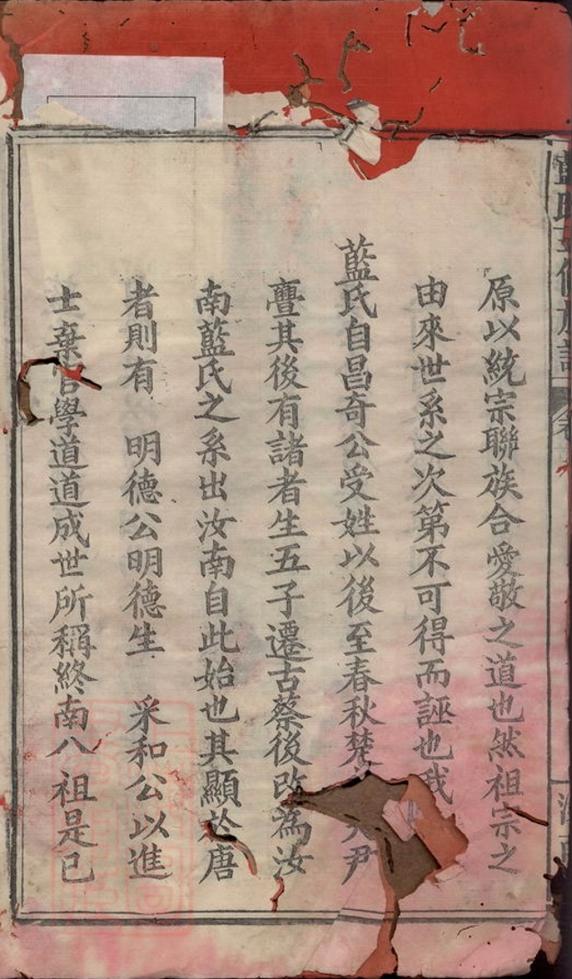 原以統宗聯族合愛敬之道也然祖宗之
由來世系之次第不可得而誣也我
藍氏自昌奇公受姓以後至春秋楚尹
亹其後有諸者生五子遷古蔡後改為汝
南藍氏之系出汝南自此始也其顯於唐
者則有 明德公明德生 采和公以進
士棄官學道道成世所稱終南八祖是已